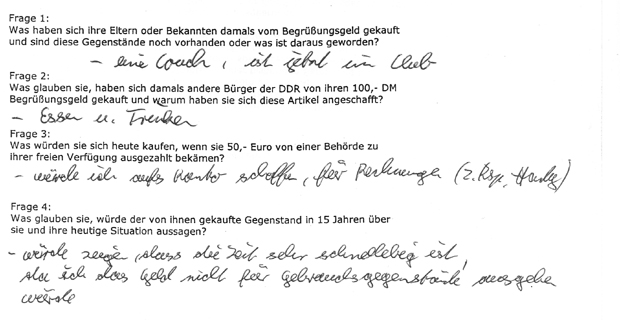 Frage 1:
Was haben sich ihre Eltern oder Bekannten damals vom Begrüßungsgeld gekauft
und sind diese Gegenstände noch vorhanden oder was ist daraus geworden?
- eine Couch, ist jetzt im Club
Frage 2:
Was glauben sie, haben sich damals andere Bürger der DDR von ihren 100,- DM
Begrüßungsgeld gekauft und warum haben sie sich diese Artikel angeschafft?
- Essen u. Trinken
Frage 3:
Was würden sie sich heute kaufen, wenn sie 50,- Euro von einer Behörde zu
ihrer freien Verfügung ausgezahlt bekämen?
- würde ich aufs Konto schaffen, für Rechnungen (z. Bsp. Handy)
Frage 4:
Was glauben sie, würde der von ihnen gekaufte Gegenstand in 15 Jahren über
sie und ihre heutige Situation aussagen?
- würde zeigen, dass die Zeit sehr schnelllebig ist,
da ich das Geld nicht für Gebrauchsgegenstände ausgeben
würde